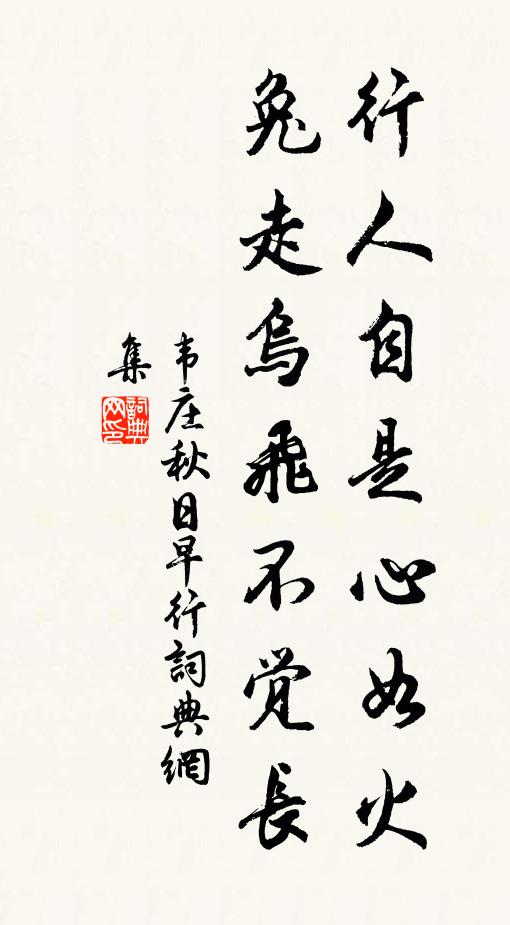 行人自是心如火
兔走烏飛不觉長
韦庄秋日早行詞典網
集
詞典网印